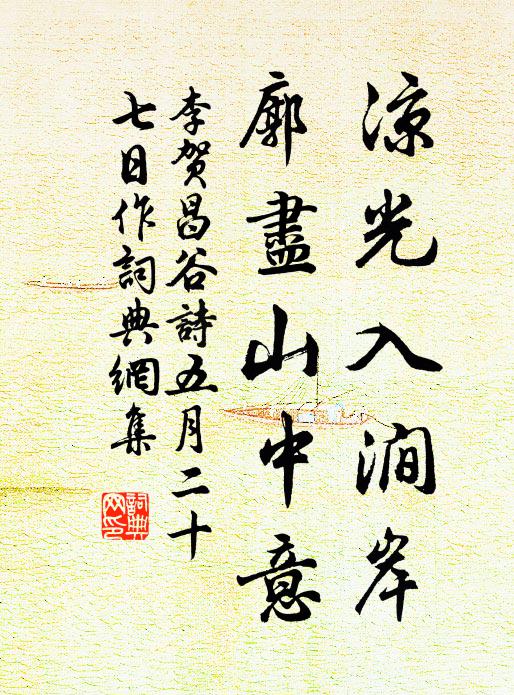 涼光入澗岸
廓盡山中意
李賀昌谷詩五月二十
七日作詞典網集
詞典
网印